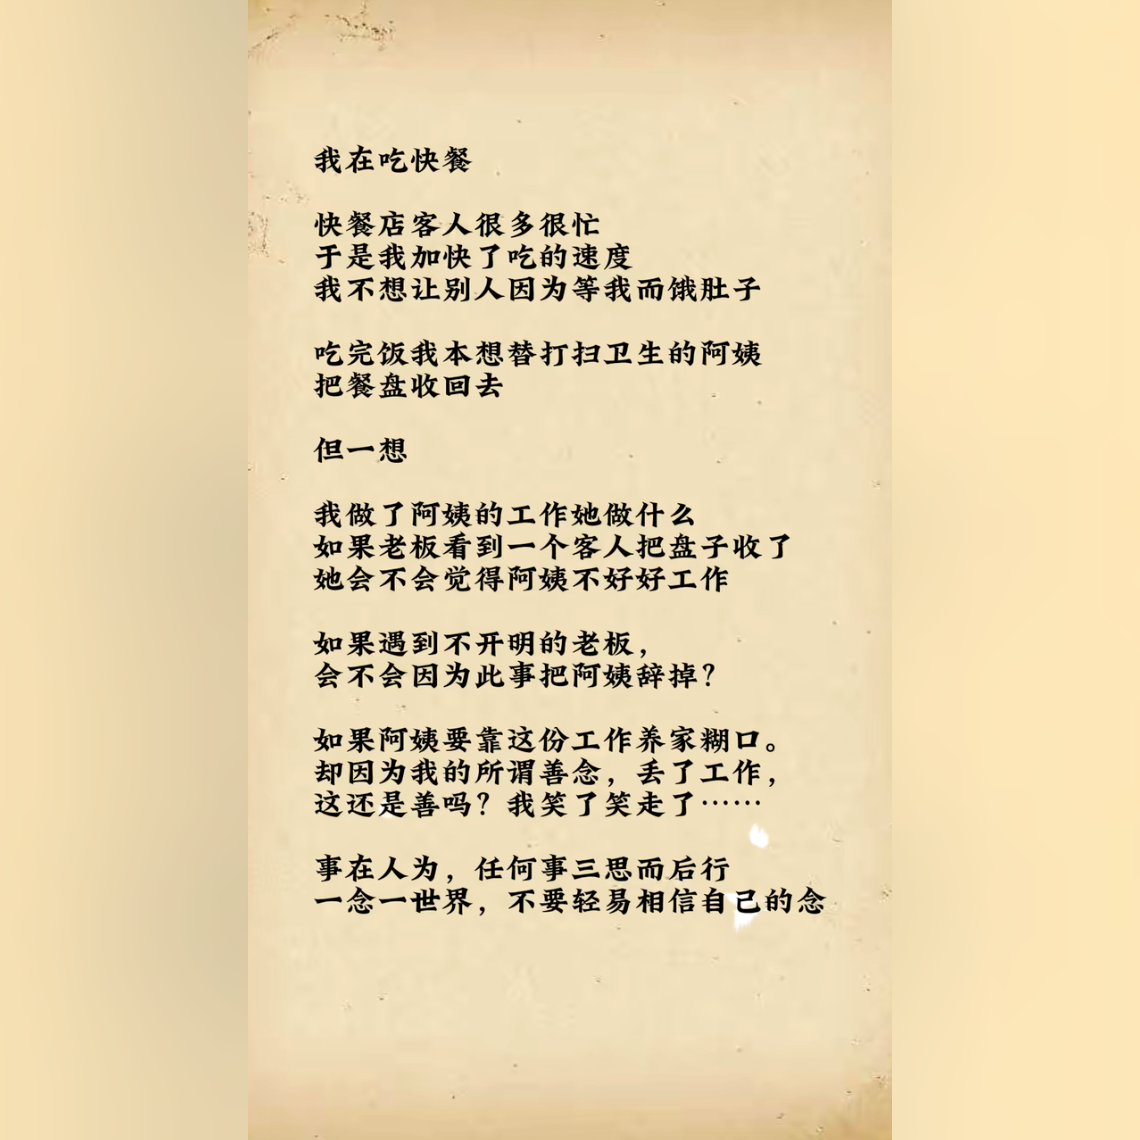 我在吃快餐
快餐店客人很多很忙
于是我加快了吃的速度
我不想让别人因为等我而饿肚子
吃完饭我本想替打扫卫生的阿姨
把餐盘收回去
但一想
我做了阿姨的工作她做什么
如果老板看到一个客人把盘子收了
她会不会觉得阿姨不好好工作
如果遇到不开明的老板，
会不会因为此事把阿姨辞掉？
如果阿姨要靠这份工作养家糊口。
却因为我的所谓善念，丢了工作，
这还是善吗？我笑了笑走了……
事在人为，任何事三思而后行
一念一世界，不要轻易相信自己的念